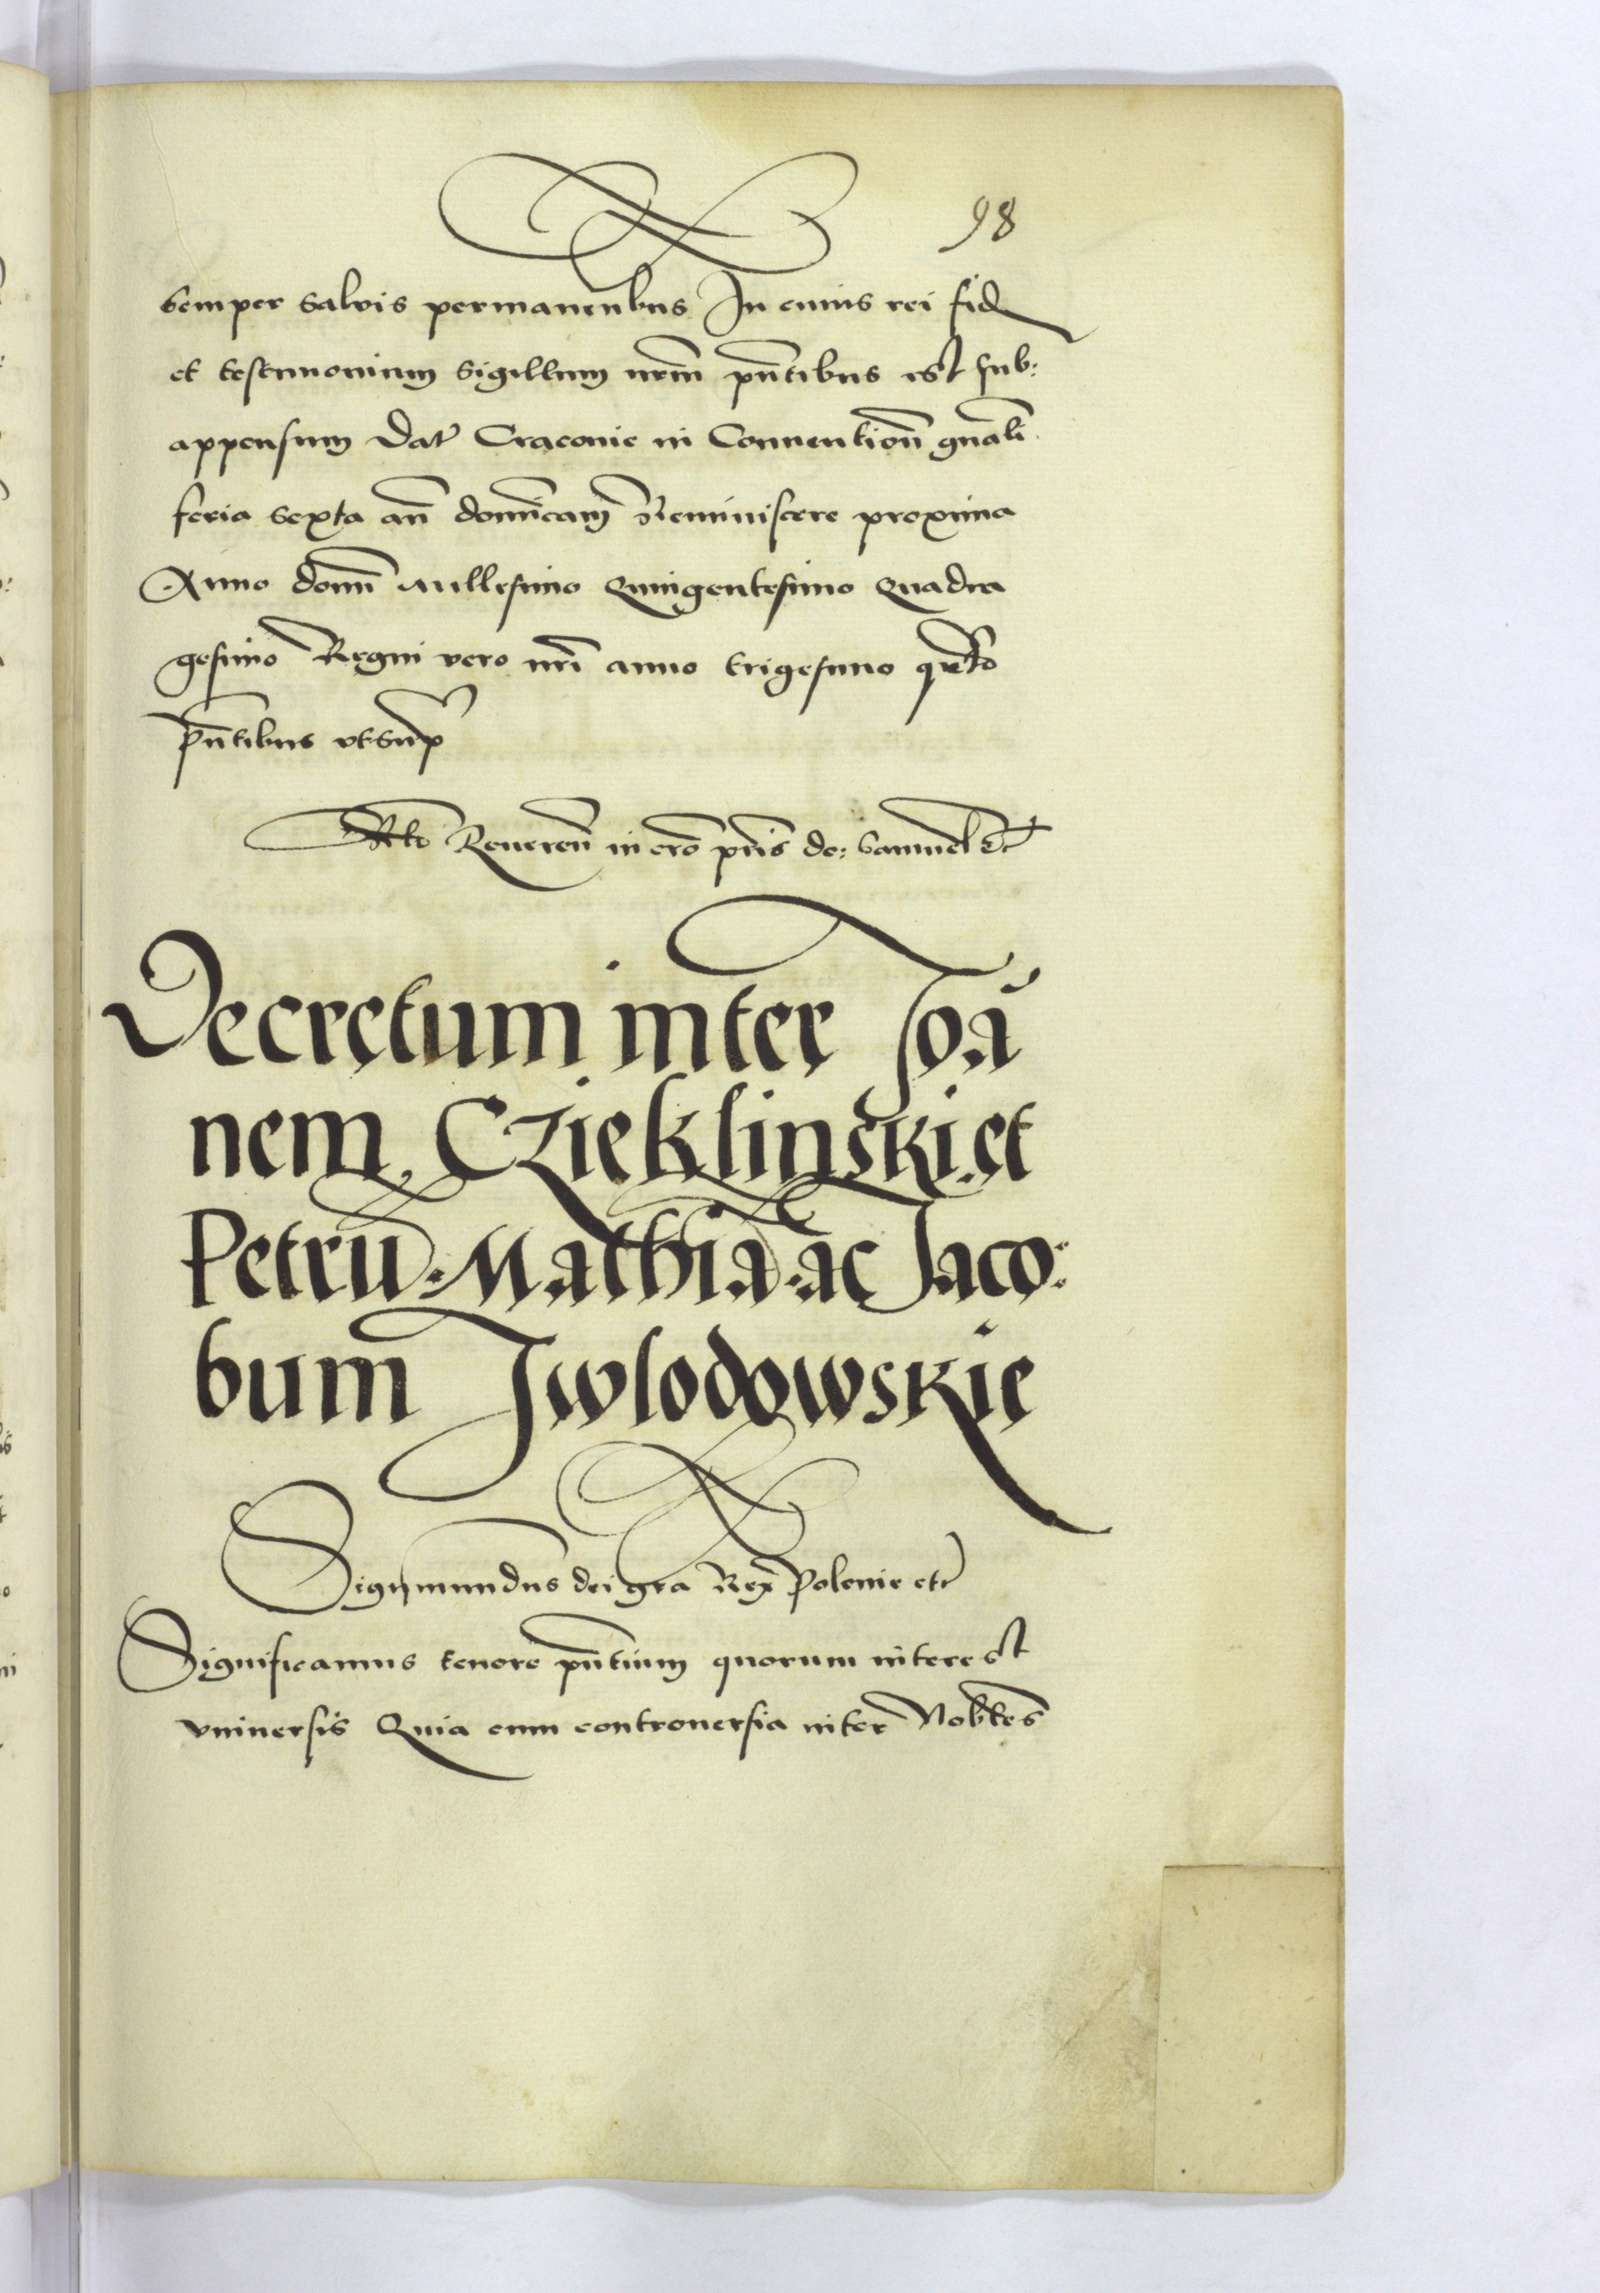 98
semper salvis permanenbus In cuius rei fid
et testimonium sigillum nrm̄ pn̄tibus est sub:
appensum Dat Cracovie in Conventioñ gnāli
feria sexta añ domīcam Reminiscere proxima
Anno domī Millesimo Quingentesimo Quadra
gesimo Regni vero nrī anno trigesimo qrto
pn̄tibus ut supͬ
Rᵗᵒ Reverenͩ in crō pris̄ do: Samuel etc
Decretum inter Joā
nem Czieklinski et
Petrū Mathiā ac Jaco:
bum Jwlodowskie
Sigismundus dei gra Rex Polonie etc
Significamus tenore pn̄tium quorum interest
vniversis Quia cum controversia inter Nobiles